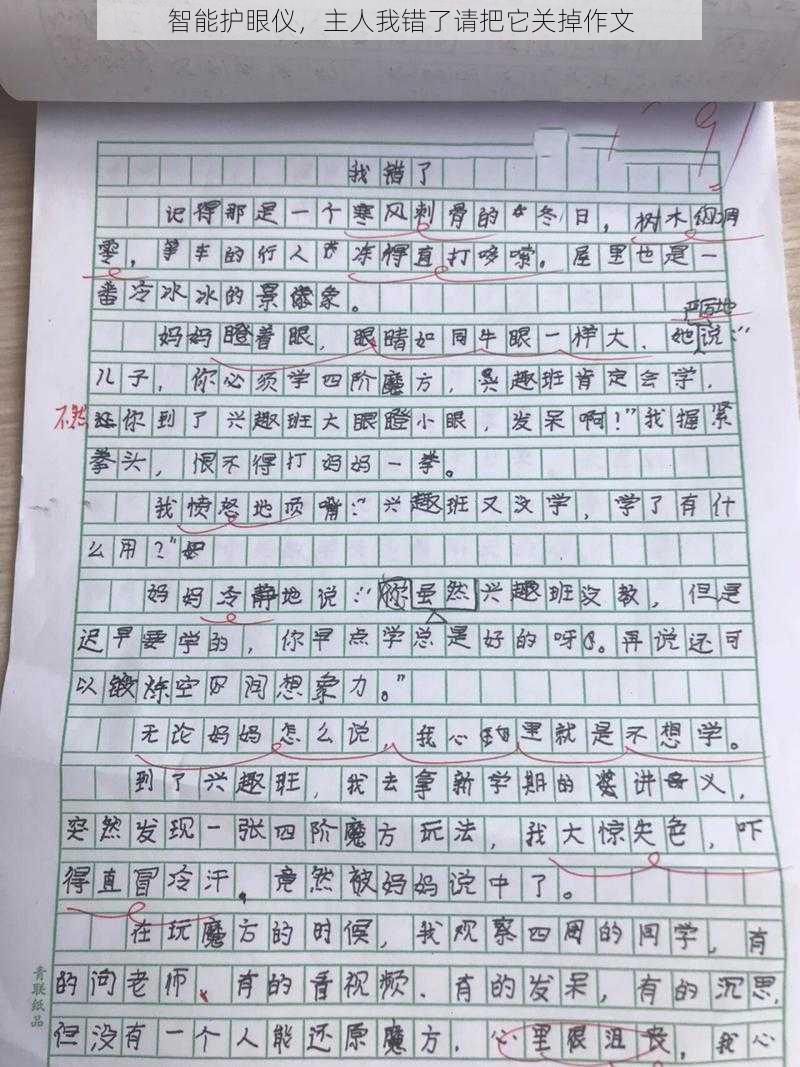 智能护眼仪，主人我错了请把它关掉作文
91
我错了
记得那是一个寒风刺骨的冬日，树木凋
零，车的行人冻得直打哆嗦。屋里也是一
番冷冰冰的景象。
严厉地
妈妈瞪着眼，眼睛如同牛眼一样大，她说：“
儿子，你必须学四阶魔方，兴趣班肯定会学，
不然你到了兴趣班大眼瞪小眼，发呆啊！”我握紧
拳头，恨不得打妈妈一拳。
我愤怒地顶嘴：“兴趣班又没学，学了有什
么用？”
妈妈冷静地说：“你虽然兴趣班没教，但是
迟早要学的，你早点学总是好的呀。再说还可
以锻炼空间想象力。”
无论妈妈怎么说，我心里就是不想学。
到了兴趣班，我去拿新学期的讲义，
突然发现一张四阶魔方玩法，我大惊失色，吓
得直冒冷汗，竟然被妈妈说中了。
在玩魔方的时候，我观察四周的同学，有
的问老师、有的看视频、有的发呆，有的沉思，
但没有一个人能还原魔方，心里很沮丧，我心
青联纸品